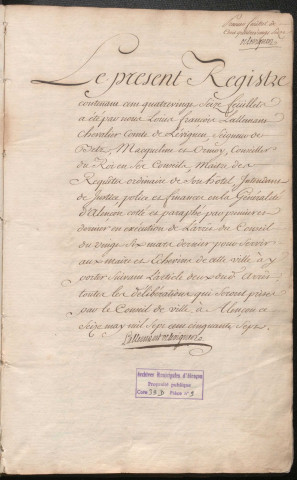 Premier feuillet de
Cent quatrevingt Seize
Le present Registre
contenant cent quatrevingt Seize feuillets
a eté par nous Louis François Lallemant
chevalier Comte de Levignen, Seigneur de
Betz, Macquelin et Ormoy, Conseiller
du Roi en Ses Conseils, Maitre des
Requêtes ordinaire de Son hotel, Intendant
de Justice police et finances en la Généralité
d'Alençon cotté et paraphé par premiere et
derniere en execution de L'arrest du Conseil
du vingt Six mars dernier pour servir
aux maire et Echevins de cette ville a y
porter Suivant L'article deux dud. Arrest
toutes les déliberations qui seront prises
par le Conseil de ville à Alençon ce
Seize may mil Sept cens cinquante Sept.
Lallemant de Levignen
Archives Municipales d'Alençon
Propriété publique
Cote 1 D Pièce n° 5